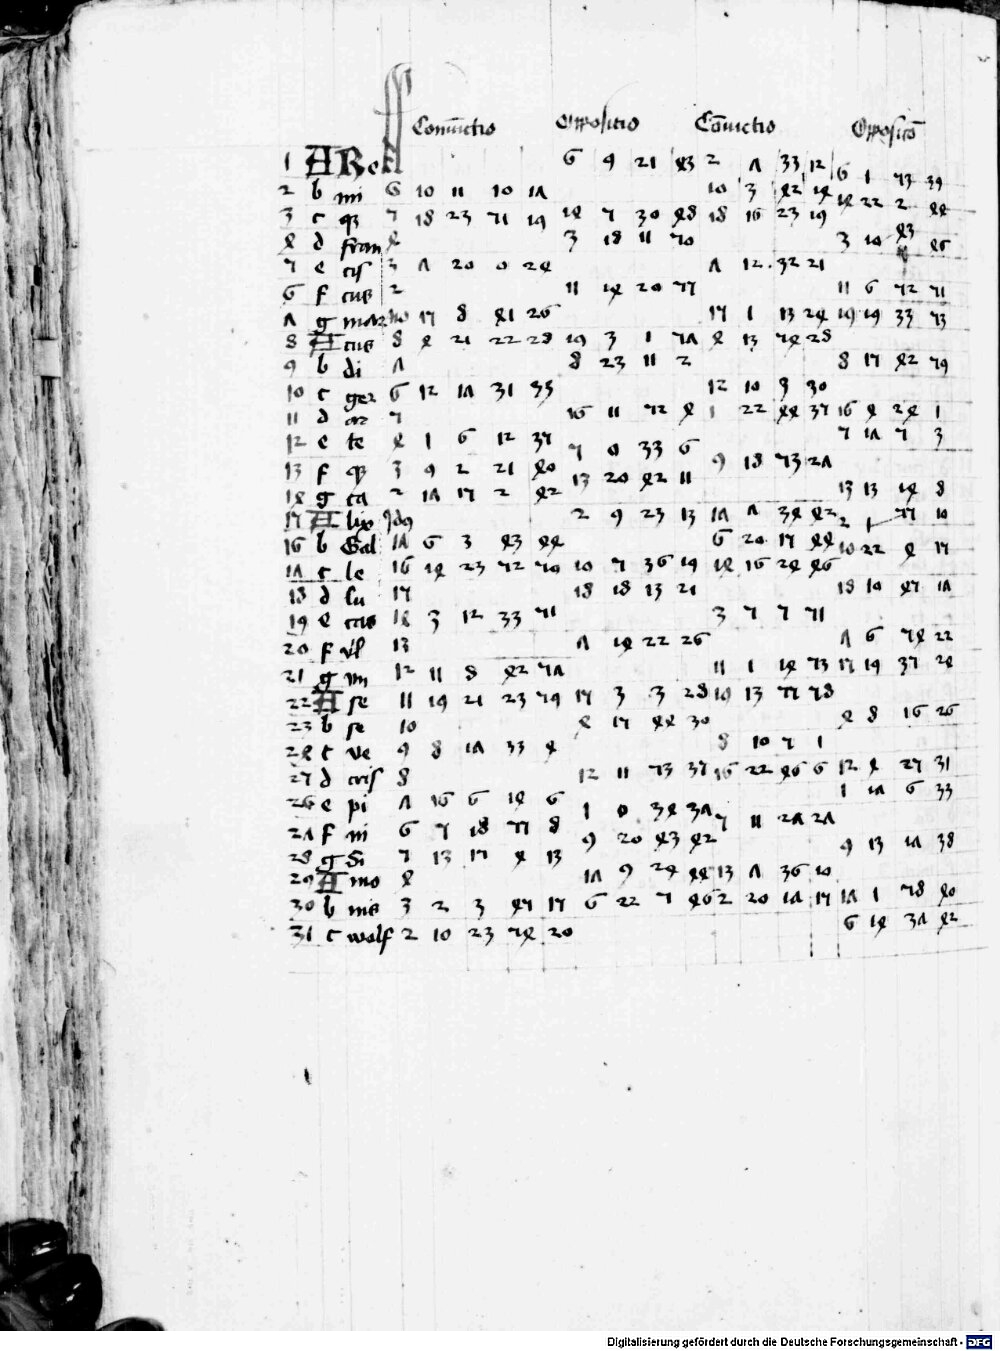 Coniunctio Oppositio Coniunctio Oppositio
1 A Re 6 9 21 43 2 Λ 33 12 6 1 53 39
2 b mi 6 10 11 10 1Λ 10 3 42 14 14 22 2 44
3 c q 5 18 23 51 19 14 5 30 48 18 16 23 19
4 d fran 4 3 18 11 50 3 10 43 46
5 e cis 3 Λ 20 0 24 Λ 12 32 21
6 f cus 2 11 14 20 55 11 6 52 51
Λ g mar 15 8 41 26 15 1 13 24 19 19 33 53
8 A cus 8 4 21 22 28 19 3 1 5Λ 4 13 54 28
9 b di Λ 8 23 11 2 8 15 42 59
10 c ger 6 12 1Λ 31 35 12 10 9 30
11 d ar 5 16 11 52 4 1 22 44 35 16 4 24 1
12 e te 4 1 6 12 35 5 0 33 6 5 1Λ 5 3
13 f q 3 9 2 21 40 13 20 42 11 9 18 53 2Λ
14 g ca 2 1Λ 15 2 42 13 13 14 8
15 A lix 2 9 23 13 1Λ Λ 34 42 2 1 55 10
16 b Gal 1Λ 6 3 43 44 6 20 15 44 10 22 4 15
1Λ c le 16 14 23 52 59 10 5 36 19 14 16 24 46
18 d lu 15 18 18 13 21 18 10 45 1Λ
19 e cas 14 3 12 33 51 3 5 5 51
20 f vl 13 Λ 14 22 26 Λ 6 54 22
21 g mi 12 11 8 42 5Λ 11 1 14 53 15 19 35 24
22 A se 11 19 21 23 59 15 3 3 28 19 13 55 58
23 b se 10 4 15 44 30 4 8 16 26
24 c ve 9 8 1Λ 33 4 8 10 5 1
25 d cris 8 12 11 53 35 16 22 46 6 12 4 25 31
26 e pi Λ 16 6 14 6 1 0 34 3Λ 1 1Λ 6 33
2Λ f ni 6 5 18 55 8 9 20 43 42 5 11 2Λ 2Λ
28 g Si 5 13 15 4 13 9 13 1Λ 38
29 A mo 4 1Λ 9 24 44 13 Λ 36 10
30 b nis 3 2 3 45 15 6 22 5 46 2 20 1Λ 15 1Λ 1 58 40
31 c wolf 2 10 23 54 20 6 14 3Λ 42
Digitalisierung gefördert durch die Deutsche Forschungsgemeinschaft - DFG